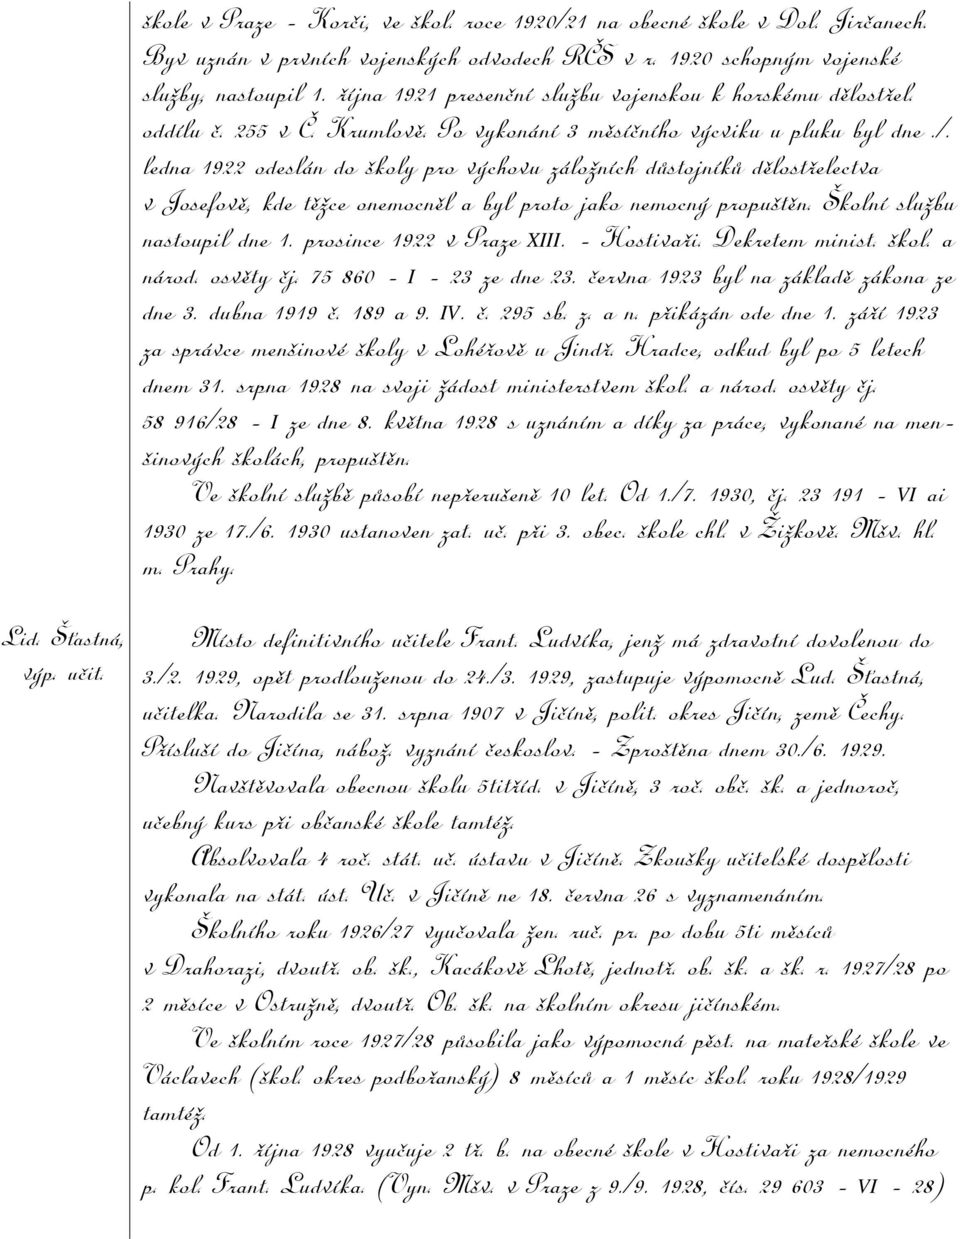 škole v Praze - Korči, ve škol. roce 1920/21 na obecné škole v Dol. Jirčanech.
Byv uznán v prvních vojenských odvodech RČS v r. 1920 schopným vojenské
služby, nastoupil 1. října 1921 presenční službu vojenskou k horskému dělostřel.
oddílu č. 255 v Č. Krumlově. Po vykonání 3 měsíčního výcviku u pluku byl dne ./.
ledna 1922 odeslán do školy pro výchovu záložních důstojníků dělostřelectva
v Josefově, kde těžce onemocněl a byl proto jako nemocný propuštěn. Školní službu
nastoupil dne 1. prosince 1922 v Praze XIII. - Hostivaři. Dekretem minist. škol. a
národ. osvěty čj. 75 860 - I - 23 ze dne 23. června 1923 byl na základě zákona ze
dne 3. dubna 1919 č. 189 a 9. IV. č. 295 sb. z. a n. přikázán ode dne 1. září 1923
za správce menšinové školy v Lohéřově u Jindř. Hradce, odkud byl po 5 letech
dnem 31. srpna 1928 na svoji žádost ministerstvem škol. a národ. osvěty čj.
58 916/28 - I ze dne 8. května 1928 s uznáním a díky za práce, vykonané na men-
šinových školách, propuštěn.
Ve školní službě působí nepřerušeně 10 let. Od 1./7. 1930, čj. 23 191 - VI ai
1930 ze 17./6. 1930 ustanoven zat. uč. při 3. obec. škole chl. v Žižkově. Mšv. hl.
m. Prahy.
Lid. Šťastná,
výp. učit.
Místo definitivního učitele Frant. Ludvíka, jenž má zdravotní dovolenou do
3./2. 1929, opět prodlouženou do 24./3. 1929, zastupuje výpomocně Lud. Šťastná,
učitelka. Narodila se 31. srpna 1907 v Jičíně, polit. okres Jičín, země Čechy.
Přísluší do Jičína, nábož. vyznání českoslov. - Zproštěna dnem 30./6. 1929.
Navštěvovala obecnou školu 5titříd. v Jičíně, 3 roč. obč. šk. a jednoroč,
učebný kurs při občanské škole tamtéž.
Absolvovala 4 roč. stát. uč. ústavu v Jičíně. Zkoušky učitelské dospělosti
vykonala na stát. úst. Uč. v Jičíně ne 18. června 26 s vyznamenáním.
Školního roku 1926/27 vyučovala žen. ruč. pr. po dobu 5ti měsíců
v Drahorazi, dvoutř. ob. šk., Kacákově Lhotě, jednotř. ob. šk. a šk. r. 1927/28 po
2 měsíce v Ostružně, dvoutř. Ob. šk. na školním okresu jičínském.
Ve školním roce 1927/28 působila jako výpomocná pěst. na mateřské škole ve
Václavech (škol. okres podbořanský) 8 měsíců a 1 měsíc škol. roku 1928/1929
tamtéž.
Od 1. října 1928 vyučuje 2 tř. b. na obecné škole v Hostivaři za nemocného
p. kol. Frant. Ludvíka. (Vyn. Mšv. v Praze z 9./9. 1928, čís. 29 603 - VI - 28)